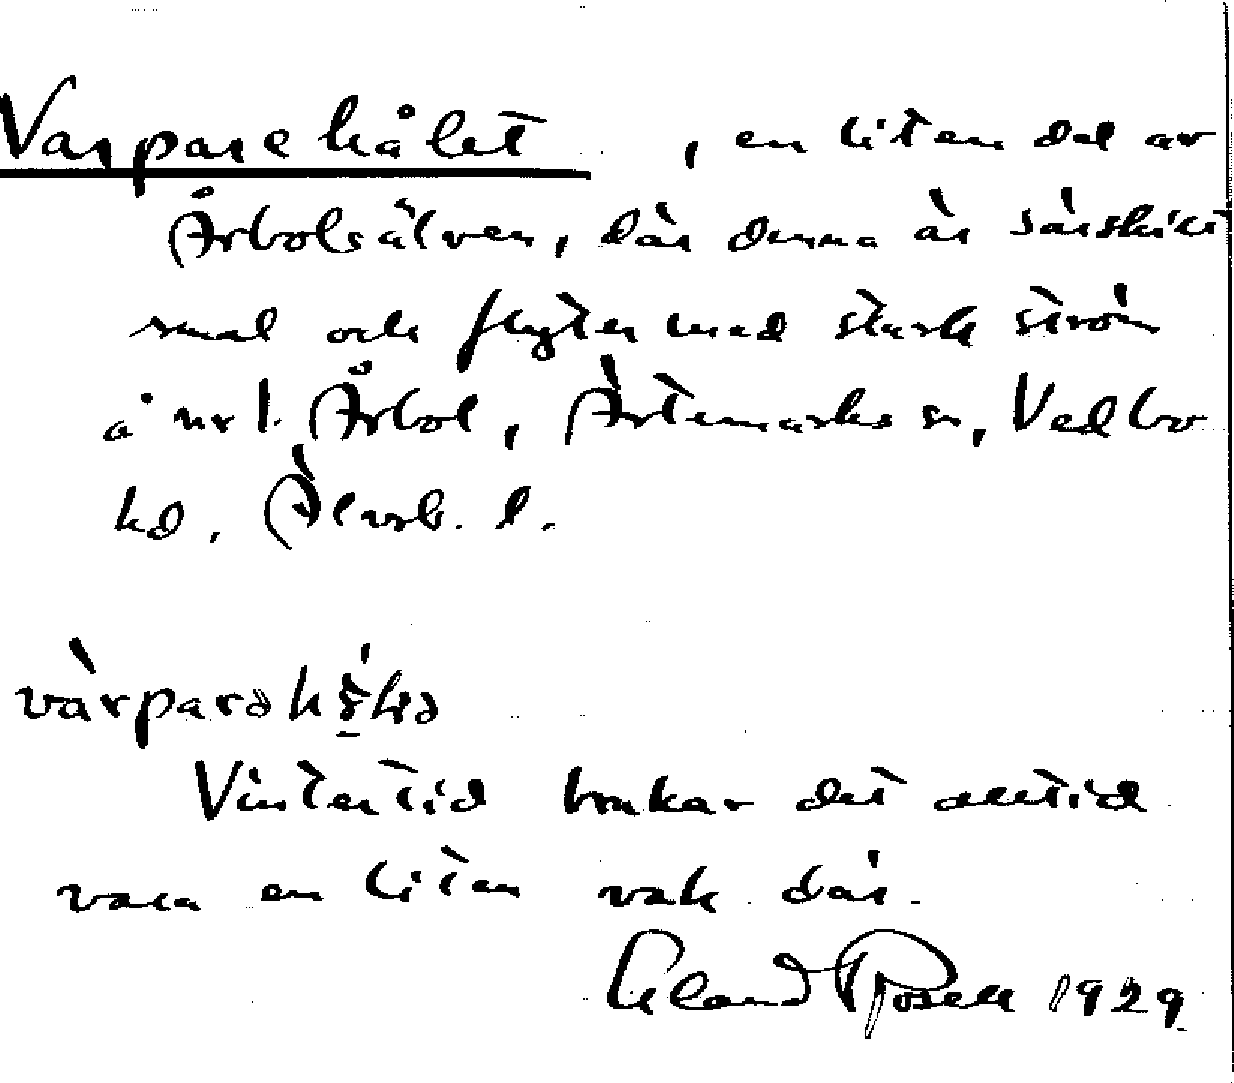 Varparehålet, en liten del av
Årbolsälven, där denna är särskilt
smal och flyter med stark ström
å nr 1. Årbol, Ärtemarks sn, Vedbo
hd, Älvsb. l.
Vintertid brukar det alltid
vara en liten vak där.
Erland Rosell 1929